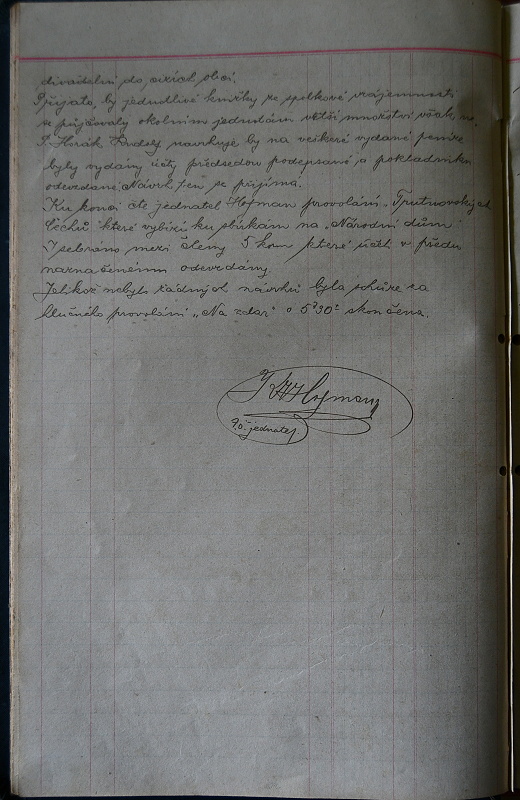 divadelní do cizích obcí.
Přijato, by jednotlivé knížky ze spolkové vzájemnosti
se půjčovaly okolním jednotám větší množství však ne.
P. Horák Rudolf navrhuje by na veškeré vydané peníze
byly vydány účty předsedou podepsané a pokladníku
odevzdané. Návrh ten se přijímá.
Ku konci čte jednatel Hofman provolání „Trutnovských
Čechů" které vybízí ku sbírkám na „Národní dům"
I sebráno mezi členy 5 kor které účti v předu
naznačenému odevzdány
Jelikož nebylo žádných návrhů byla schůze za
hlučného provolání „Na zdar" o 5 30 skončena.
Hofman
jednatel.